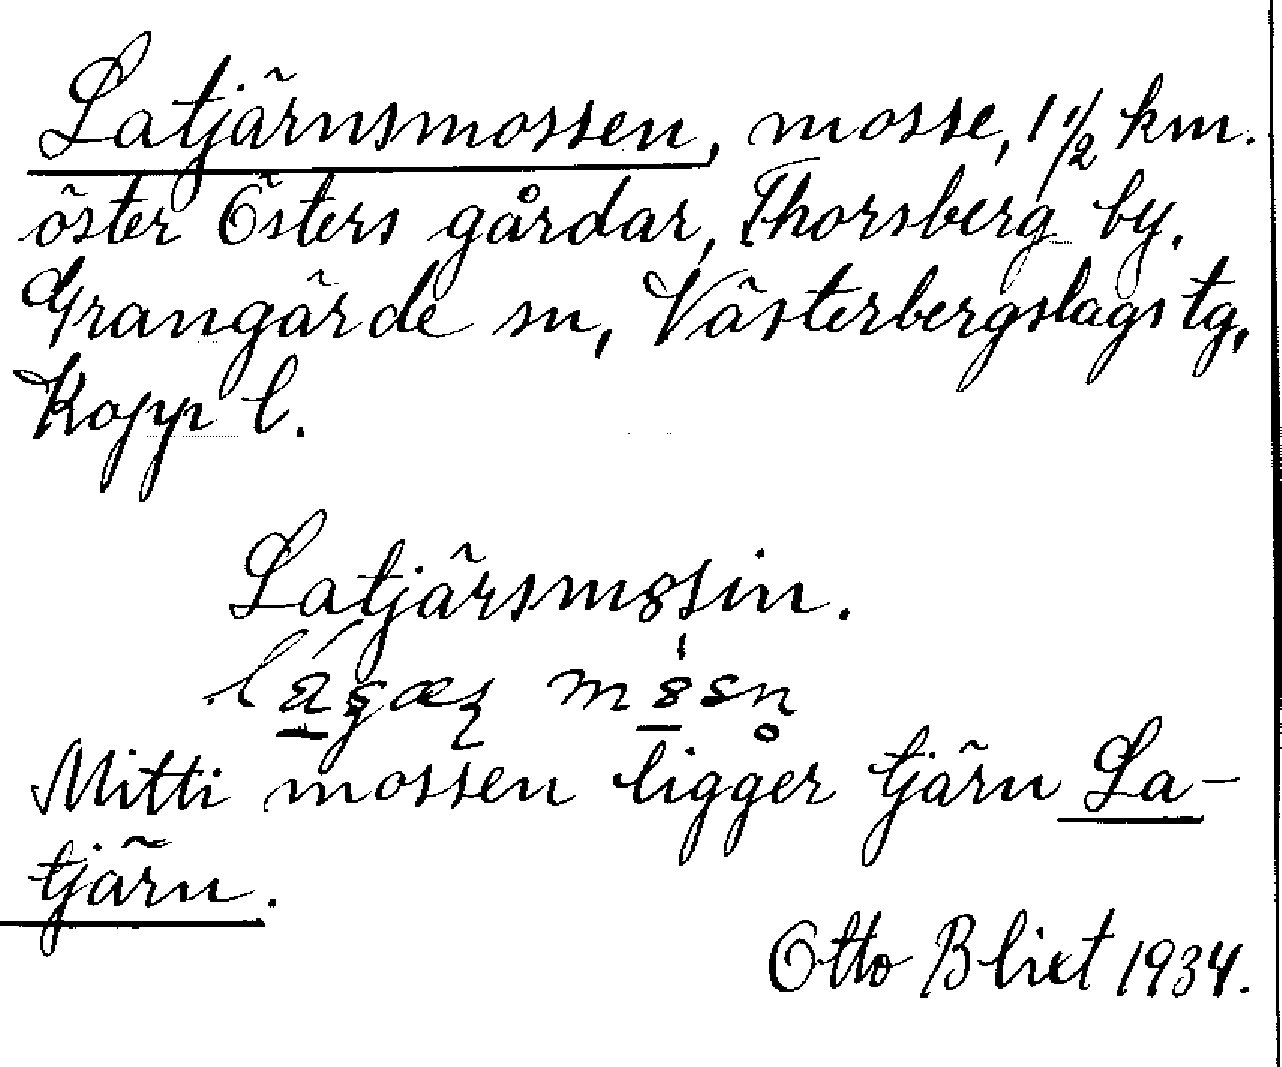 Latjärnsmossen, mosse, 1 1/2 km.
öster Östers gårdar, Thorsberg by.
Grangärde sn, Västerbergslags tg,
Kopp l.
Latjärsmosin.
Mitti mossen ligger tjärn La-
tjärn.
Otto Blixt 1934.